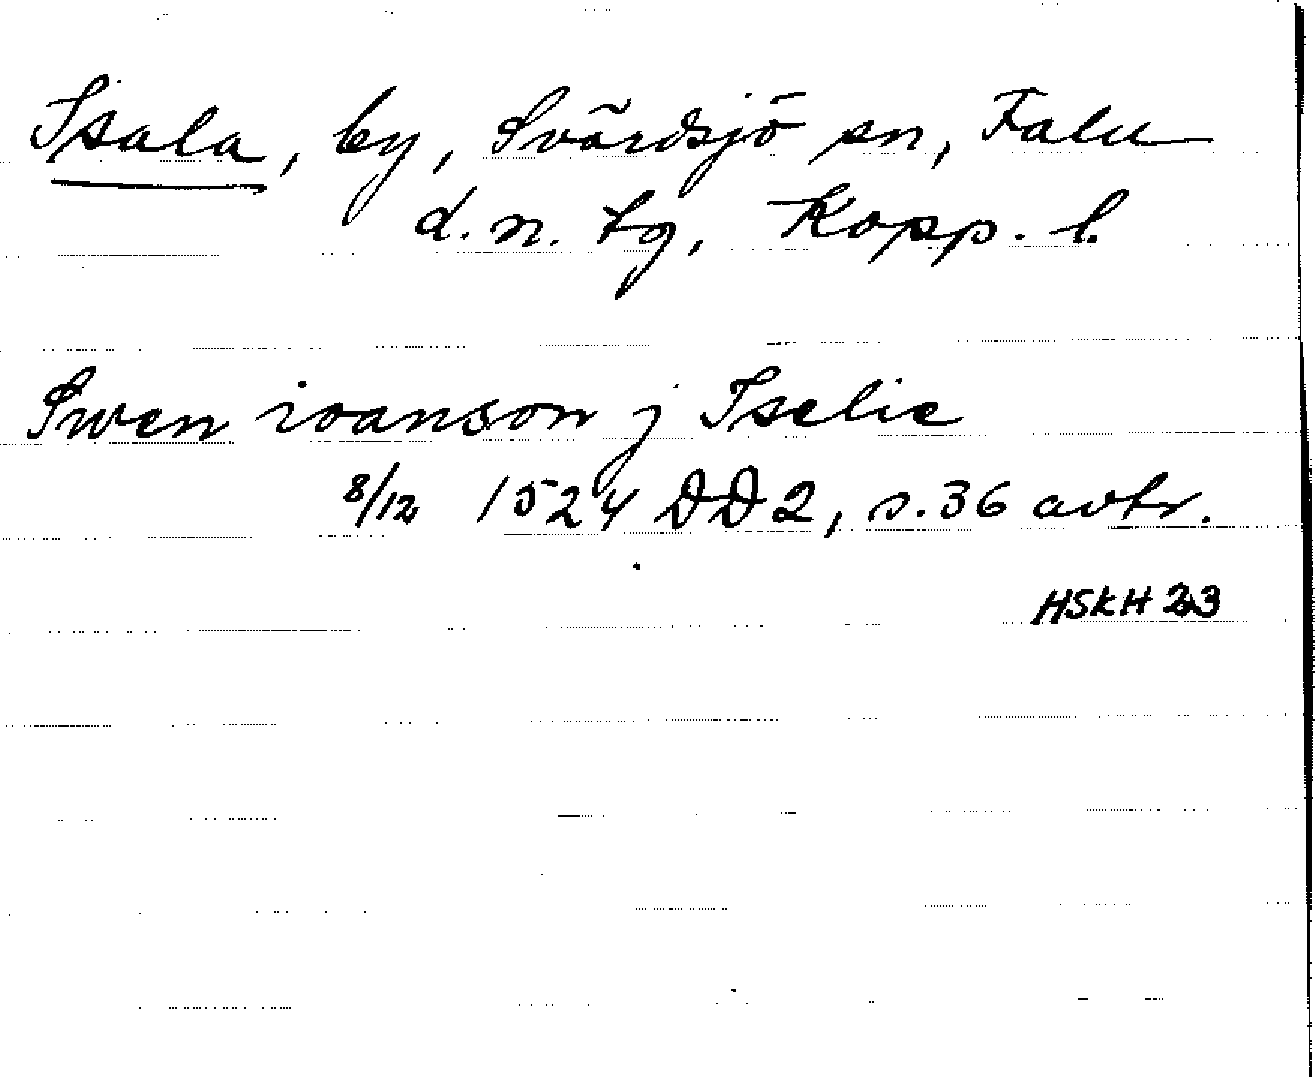 Isala, by, Svärdsjö sn, Falu
d. n. tg, Kopp. l.
Swen ioanson j Iselie
8/12 1524 DD2, s. 36 avtr.
HSKH 23